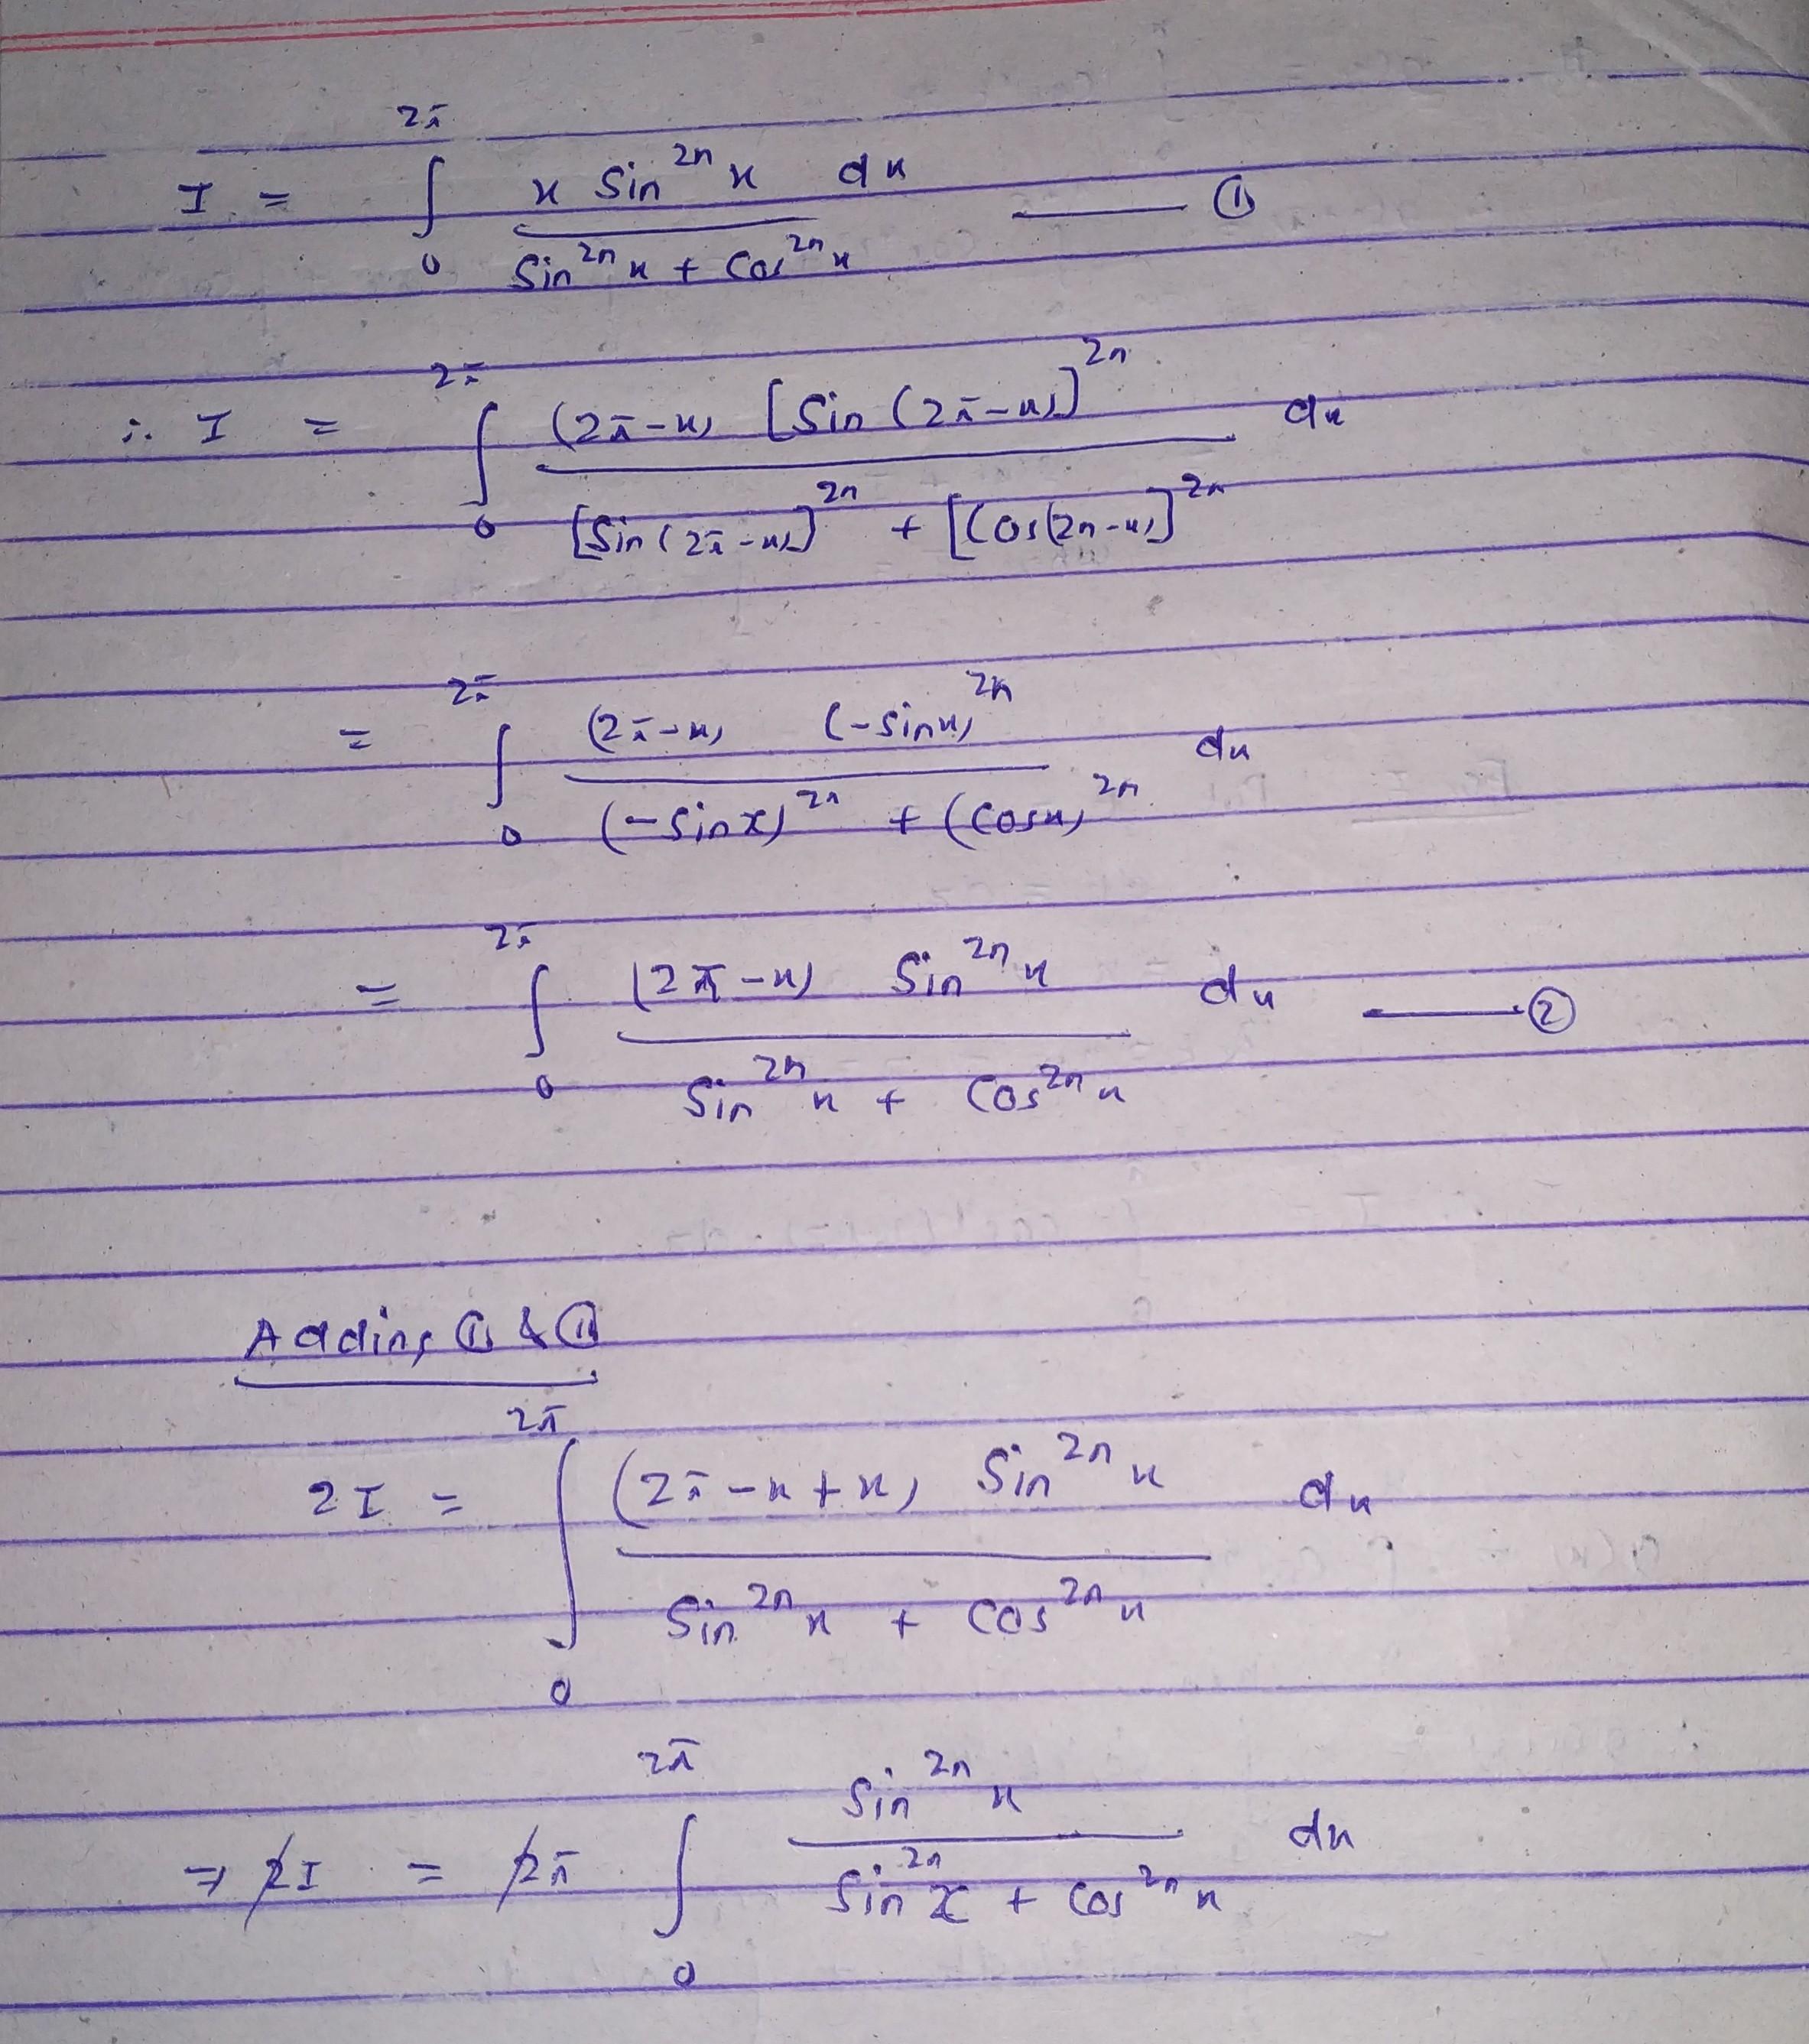 I = ∫₀^{2π} x Sin^{2n} x dx / (Sin^{2n} x + Cos^{2n} x) —— ①
∴ I = ∫₀^{2π} (2π-x) [Sin (2π-x)]^{2n} / ([Sin (2π-x)]^{2n} + [Cos(2π-x)]^{2n}) dx
= ∫₀^{2π} (2π-x) (-sinx)^{2n} / ((-sinx)^{2n} + (cosx)^{2n}) dx
= ∫₀^{2π} (2π-x) Sin^{2n} x / (Sin^{2n} x + Cos^{2n} x) dx —— ②
Adding ① & ⑪
2I = ∫₀^{2π} (2π-x+x) Sin^{2n} x / (Sin^{2n} x + Cos^{2n} x) dx
⇒ 2I = 2π ∫₀^{2π} Sin^{2n} x / (Sin^{2n} x + Cos^{2n} x) dx